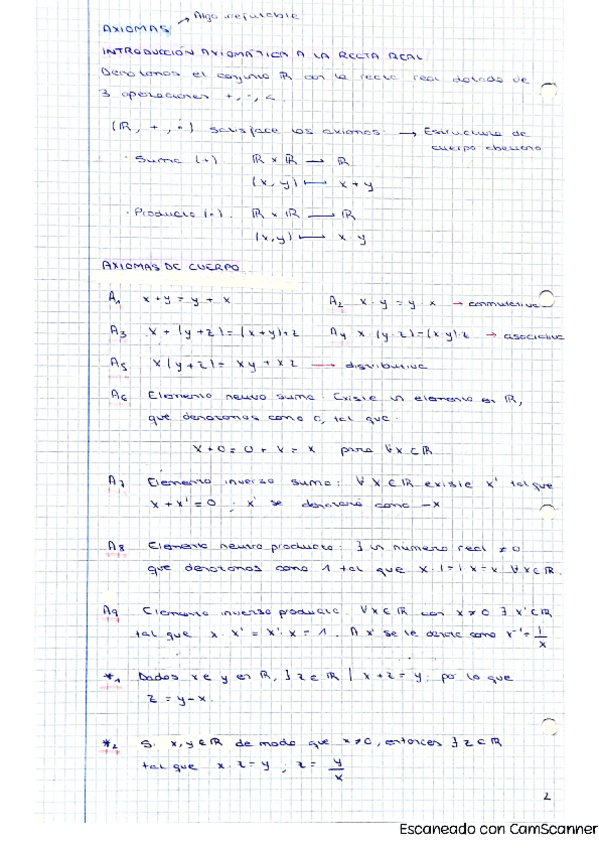 AXIOMAS → Algo irrefutable
INTRODUCCIÓN AXIOMÁTICA A LA RECTA REAL
Denotamos el conjunto ℝ con la recta real dotado de
3 operaciones +, ·, <.
(ℝ, +, ·) satisface los axiomas: → Estructura de
cuerpo abeliano
· Suma (+). ℝ × ℝ → ℝ
(x, y) ↦ x + y
· Producto (·). ℝ × ℝ → ℝ
(x, y) ↦ x y
AXIOMAS DE CUERPO
A1 x + y = y + x A2 x · y = y · x → conmutativa
A3 x + (y + z) = (x + y) + z A4 x · (y · z) = (x · y) · z → asociativa
A5 x (y + z) = xy + xz → distributiva
A6 Elemento neutro suma: Existe un elemento en ℝ,
que denotamos como 0, tal que:
x + 0 = 0 + x = x para ∀x ∈ ℝ
A7 Elemento inverso suma: ∀x ∈ ℝ existe x' tal que
x + x' = 0 ; x' se denotará como -x
A8 Elemento neutro producto: ∃ un número real ≠ 0
que denotamos como 1 tal que x · 1 = 1 · x = x ∀x ∈ ℝ.
A9 Elemento inverso producto: ∀x ∈ ℝ con x ≠ 0 ∃ x' ∈ ℝ
tal que x · x' = x' · x = 1. A x' se le denota como x⁻¹ = 1/x
*1 Dados x e y en ℝ, ∃ z ∈ ℝ | x + z = y; por lo que
z = y - x.
*2 Si x, y ∈ ℝ de modo que x ≠ 0, entonces ∃ z ∈ ℝ
tal que x · z = y ; z = y/x
2
Escaneado con CamScanner